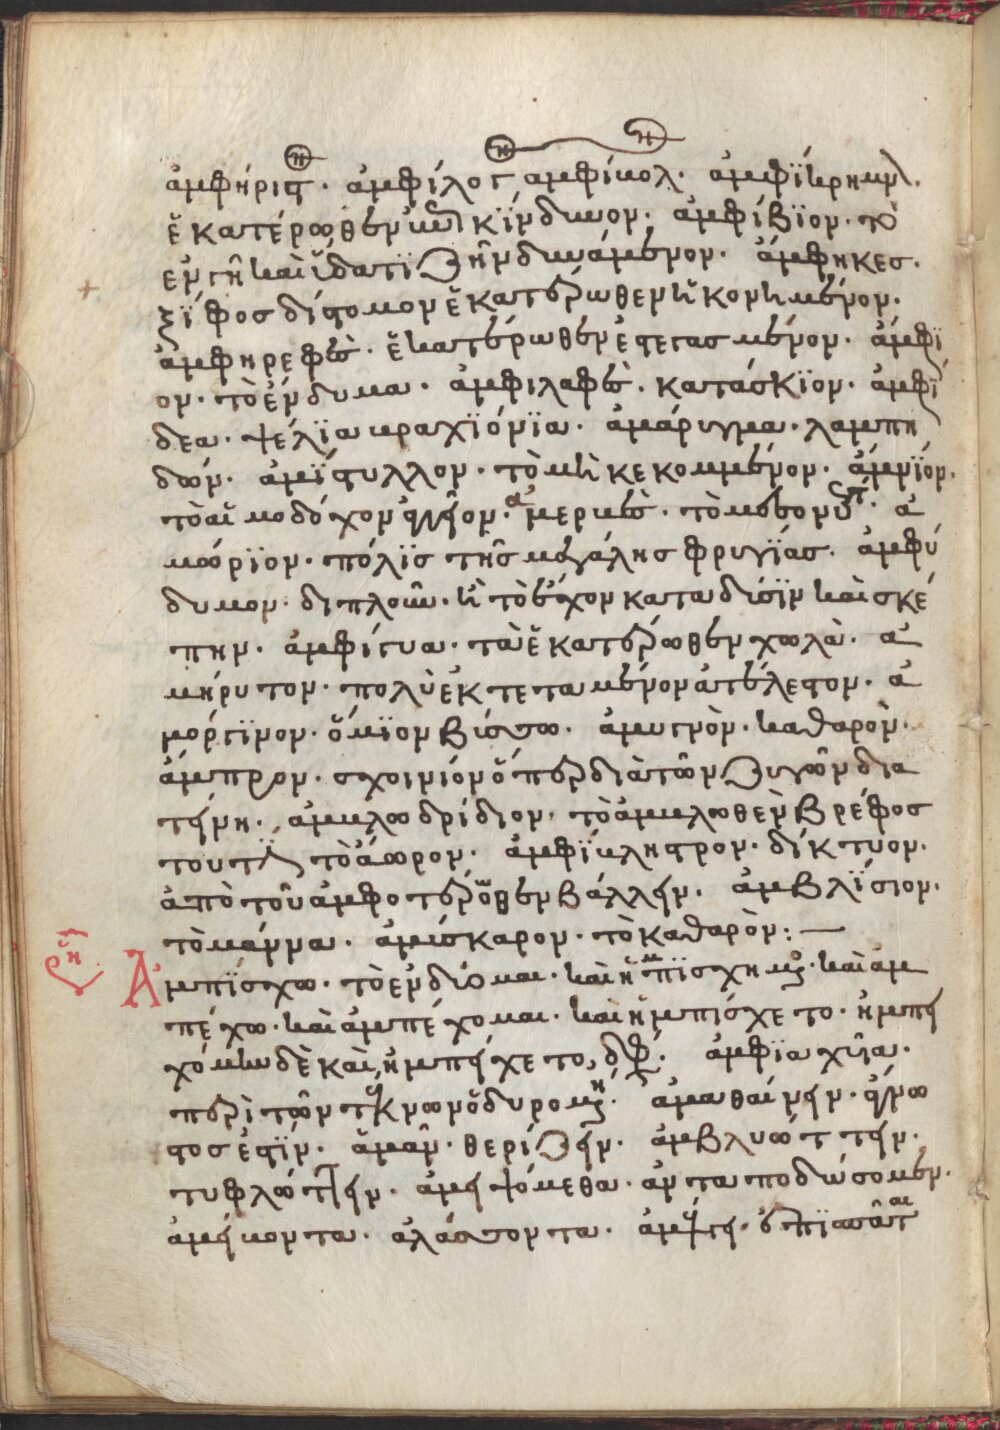 ἀμφήριστ. ἀμφίλος ἀμφίκολ. ἀμφϊκρημν.
ἑκατέρωθεν κϊνδυνον. ἀμφίβϊον. τὸ
ἐν γῆ καὶ ὕδατϊ ζῆν δυνάμενον. ἄμφηκεσ.
ξϊφος δίστομον ἑκατέρωθεν ἠκονημένον.
ἀμφηρεφὲς. ἑκατέρωθεν ἐστεγασμένον. ἄμφϊ
ον. τὸ ἔνδυμα. ἀμφιλαφὲς. κατάσκϊον. ἀμφϊ
δεα. ψέλϊα βραχϊόνϊα. ἀμάρυγμα. λαμπη
δών. ἀμϊστυλλον. τὸ μὴ κεκομμένον. ἄμνϊον.
τὸ αἱμοδόχον ἀγγεῖον. ἀμερκὲς.
μώρϊον. πόλϊς τῆς μεγάλης φρυγϊας. ἀμφί
δυμον. διπλοῦν. ἢ τὸ ἔχον καταδύσϊν καὶ σκέ
πην. ἀμφίγυα. τὰ ἑκατέρωθεν χωλὰ. ἀ
μήρυτον. πολὺ ἐκτεταμένον ἀτέλεστον. ἀ
μόργϊνον. ὅμϊον βύσσω. ἀμυγνὸν. καθαρὸν.
ἄμπρον. σχοινίον ὅπερ διὰ τῶν ζυγῶν δια
τείνη. ἀμβλωδρίδιον. τὸ ἀμβλωθὲν βρέφος
τουτέστϊ τὸ ἄωρον. ἀμφϊβληστρον. δίκτυον.
ἀπὸ τοῦ ἀμφοτέρωθεν βάλλειν. ἀμβλϊσιον.
τὸ μάμμα. ἀμύσκαρον. τὸ καθαρὸν: —
Ἀμπϊσχω. τὸ ἐνδύομαι. καὶ ἠμπϊσχημαι. καὶ ἀμ
πέχω. καὶ ἀμπέχομαι. καὶ ἠμπίσχετο. ἠμπει
χόμην δὲ καὶ ἠμπείχετο, ἀμφϊαχυῖα.
περὶ τῶν τέκνων ὀδυρομένη. ἀμαθαίνειν. ἀγνω
στος ἐστϊν. ἀμᾶν. θερίζειν. ἀμβλυώττειν.
τυφλώττειν. ἀμειψόμεθα. ἀνταποδώσομεν.
ἀμείβοντα. ἀλάσσοντα.